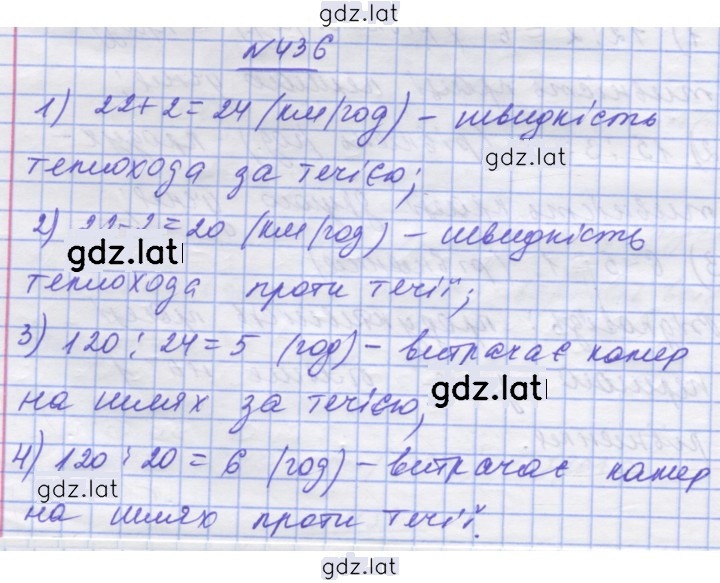 gdz.lat
№436
1) 22+2=24 (км/год) - швидкість
gdz.lat
теплохода за течією;
2) 22-2=20 (км/год) - швидкість
gdz.lat
теплохода проти течії;
3) 120:24=5 (год) - витрачає катер
gdz.lat
на шлях за течією;
4) 120:20=6 (год) - витрачає катер
gdz.lat
на шлях проти течії.
gdz.lat